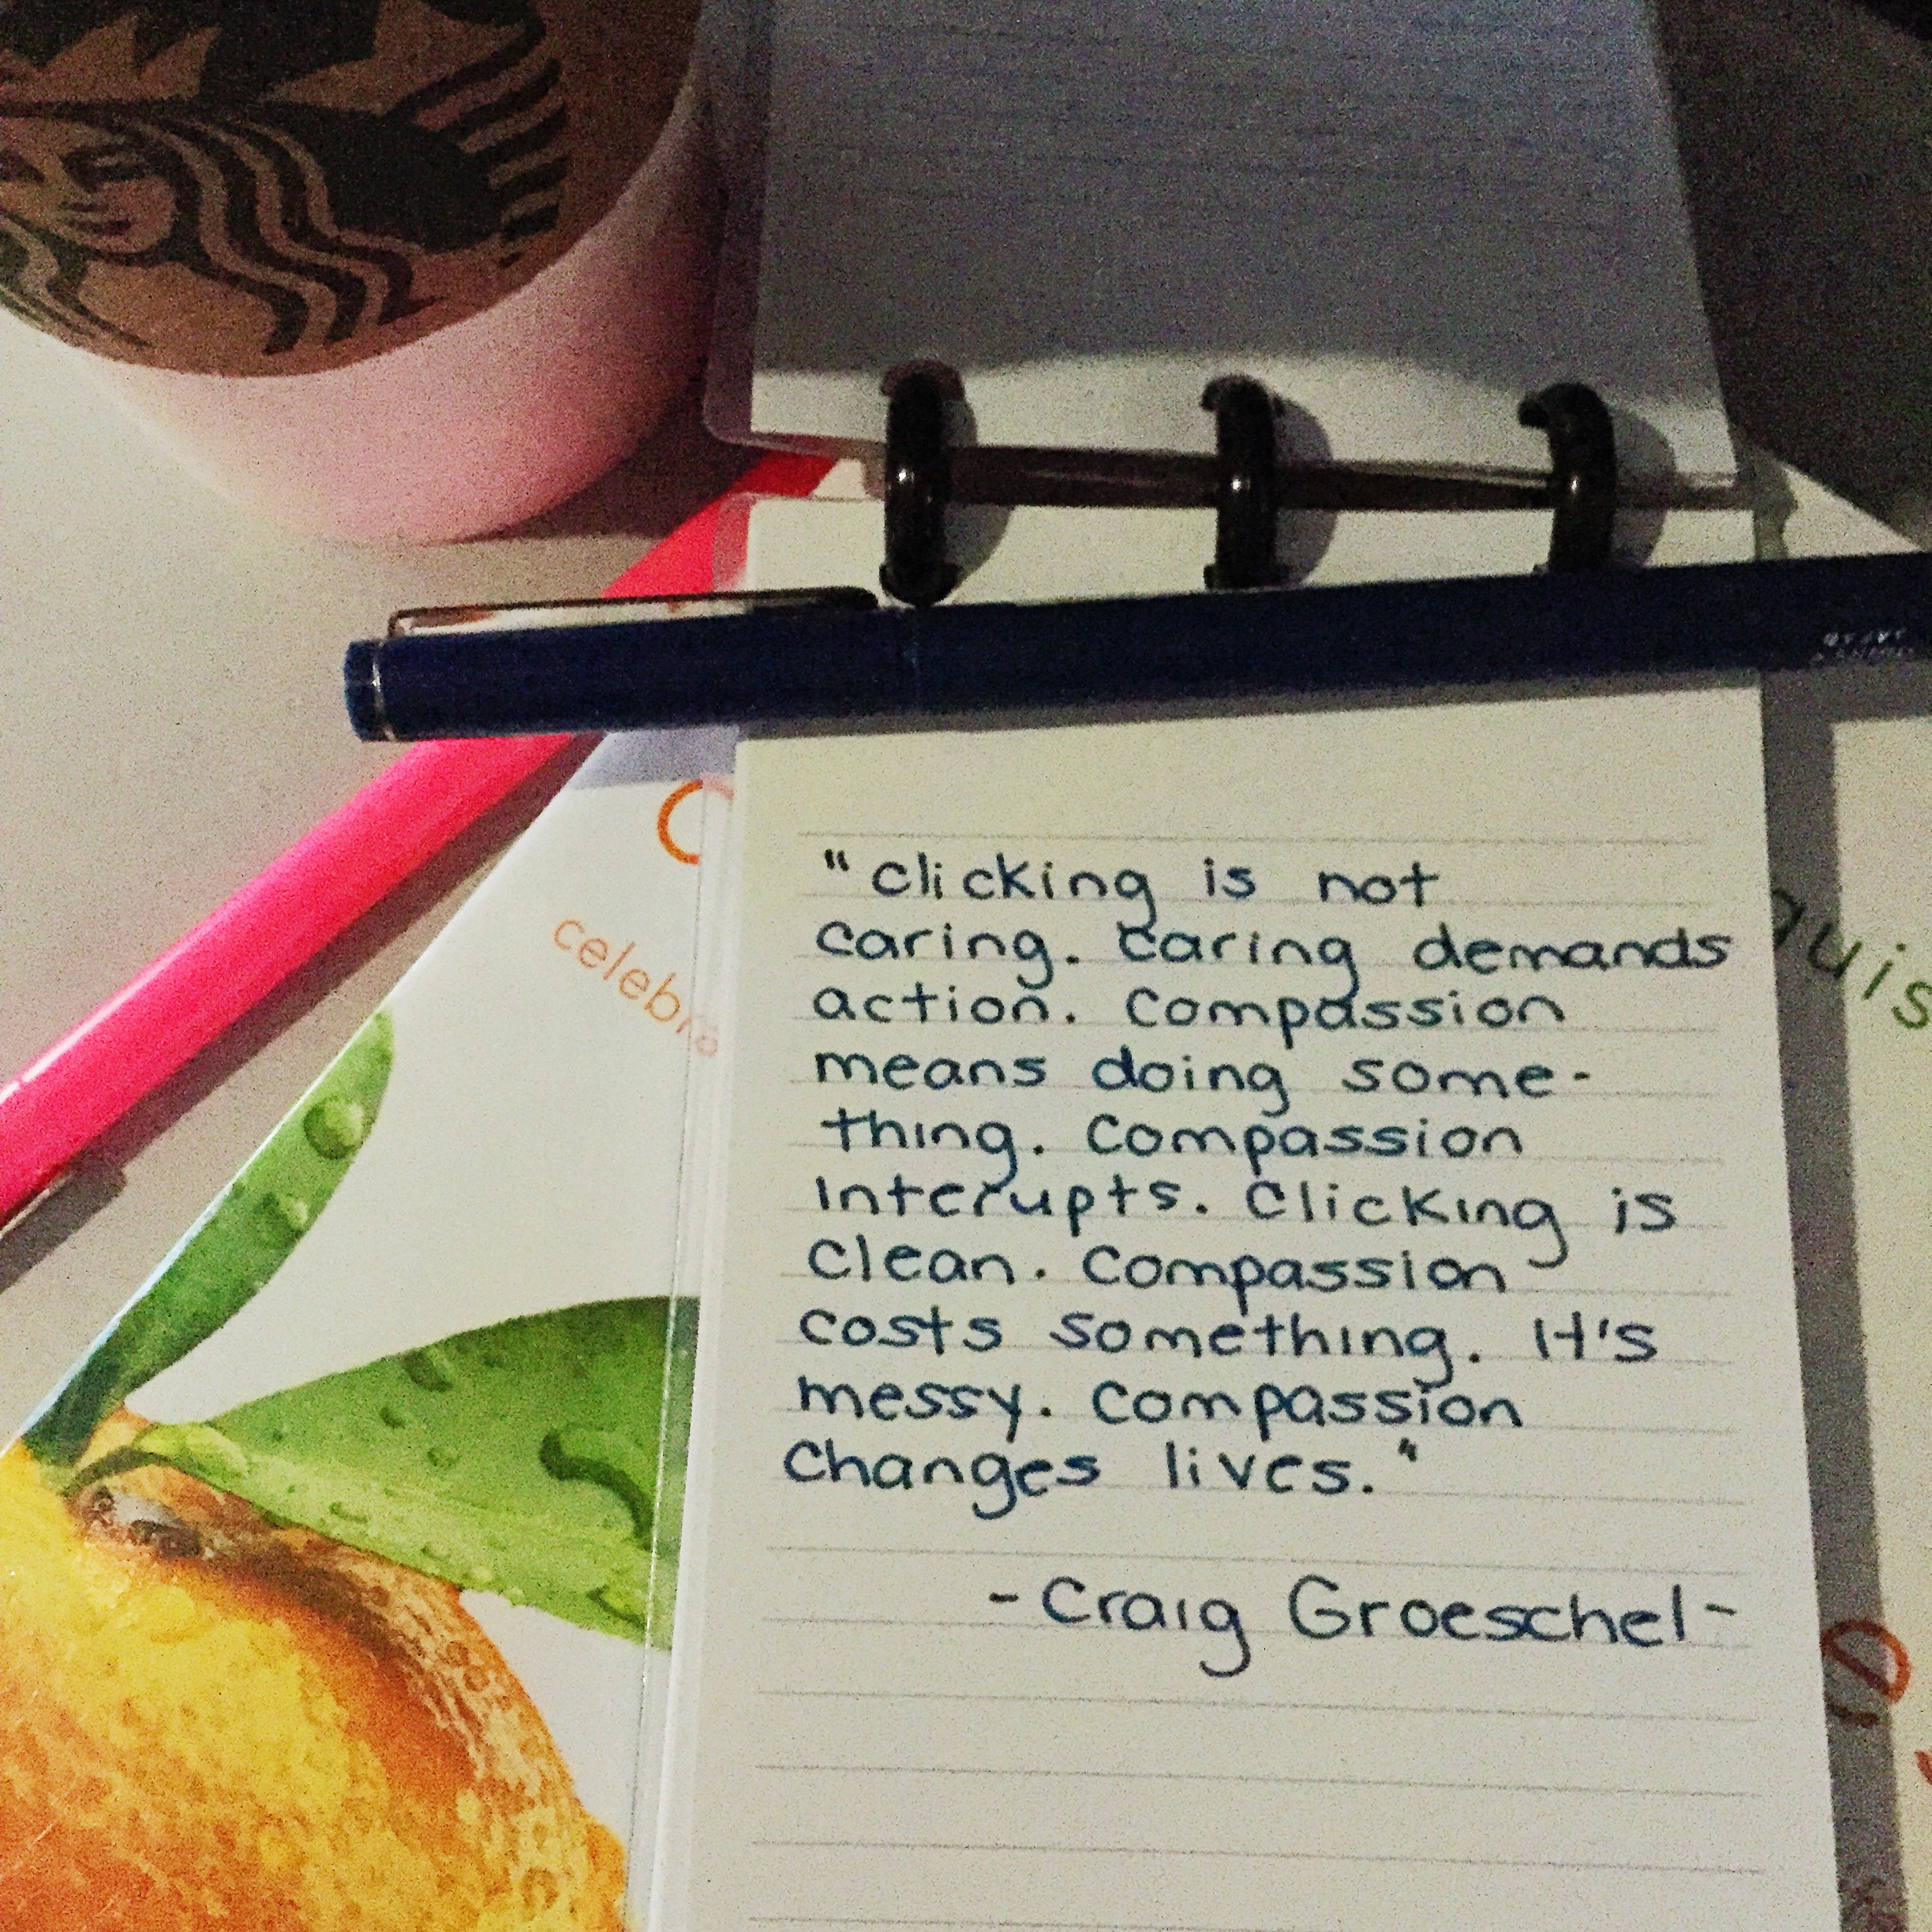 "Clicking is not
caring. Caring demands
action. Compassion
means doing some-
thing. Compassion
interupts. Clicking is
clean. Compassion
costs something. It's
messy. Compassion
changes lives."
-Craig Groeschel-
celebra
quis